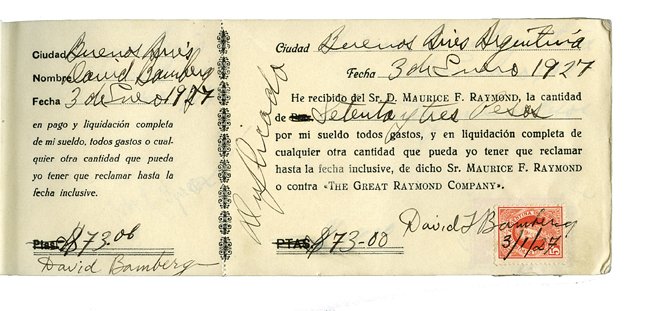 Ciudad Buenos Aires
Nombre David Bamberg
Fecha 3 de Enero 1927
en pago y liquidación completa
de mi sueldo, todos gastos o cual-
quier otra cantidad que pueda
yo tener que reclamar hasta la
fecha inclusive.
Ptas. $73.00
David Bamberg
Duplicado
Ciudad Buenos Aires Argentina
Fecha 3 de Enero 1927
He recibido del Sr. D. MAURICE F. RAYMOND, la cantidad
de Setenta y tres Pesos
por mi sueldo todos gastos, y en liquidación completa de
cualquier otra cantidad que pueda yo tener que reclamar
hasta la fecha inclusive, de dicho Sr. MAURICE F. RAYMOND
o contra «THE GREAT RAYMOND COMPANY».
PTAS. $73-00
David T Bamberg
3/1/27